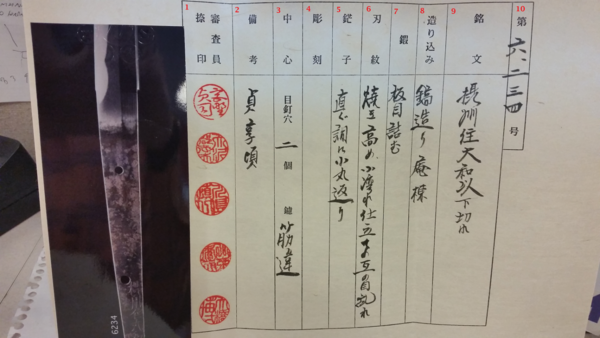 10 第 六、二三四 号
9 銘文 長州住大和以下切れ
8 造り込み 鎬造り 庵棟
7 鍛 板目詰む
6 刃紋 焼き高め 小湾れ仕立 互の目乱れ
5 鋩子 直ぐ調に小丸返り
4 彫刻
3 中心 目釘穴 二 個 鑢 筋違
2 備考 貞享頃
1 審査員捺印
6234